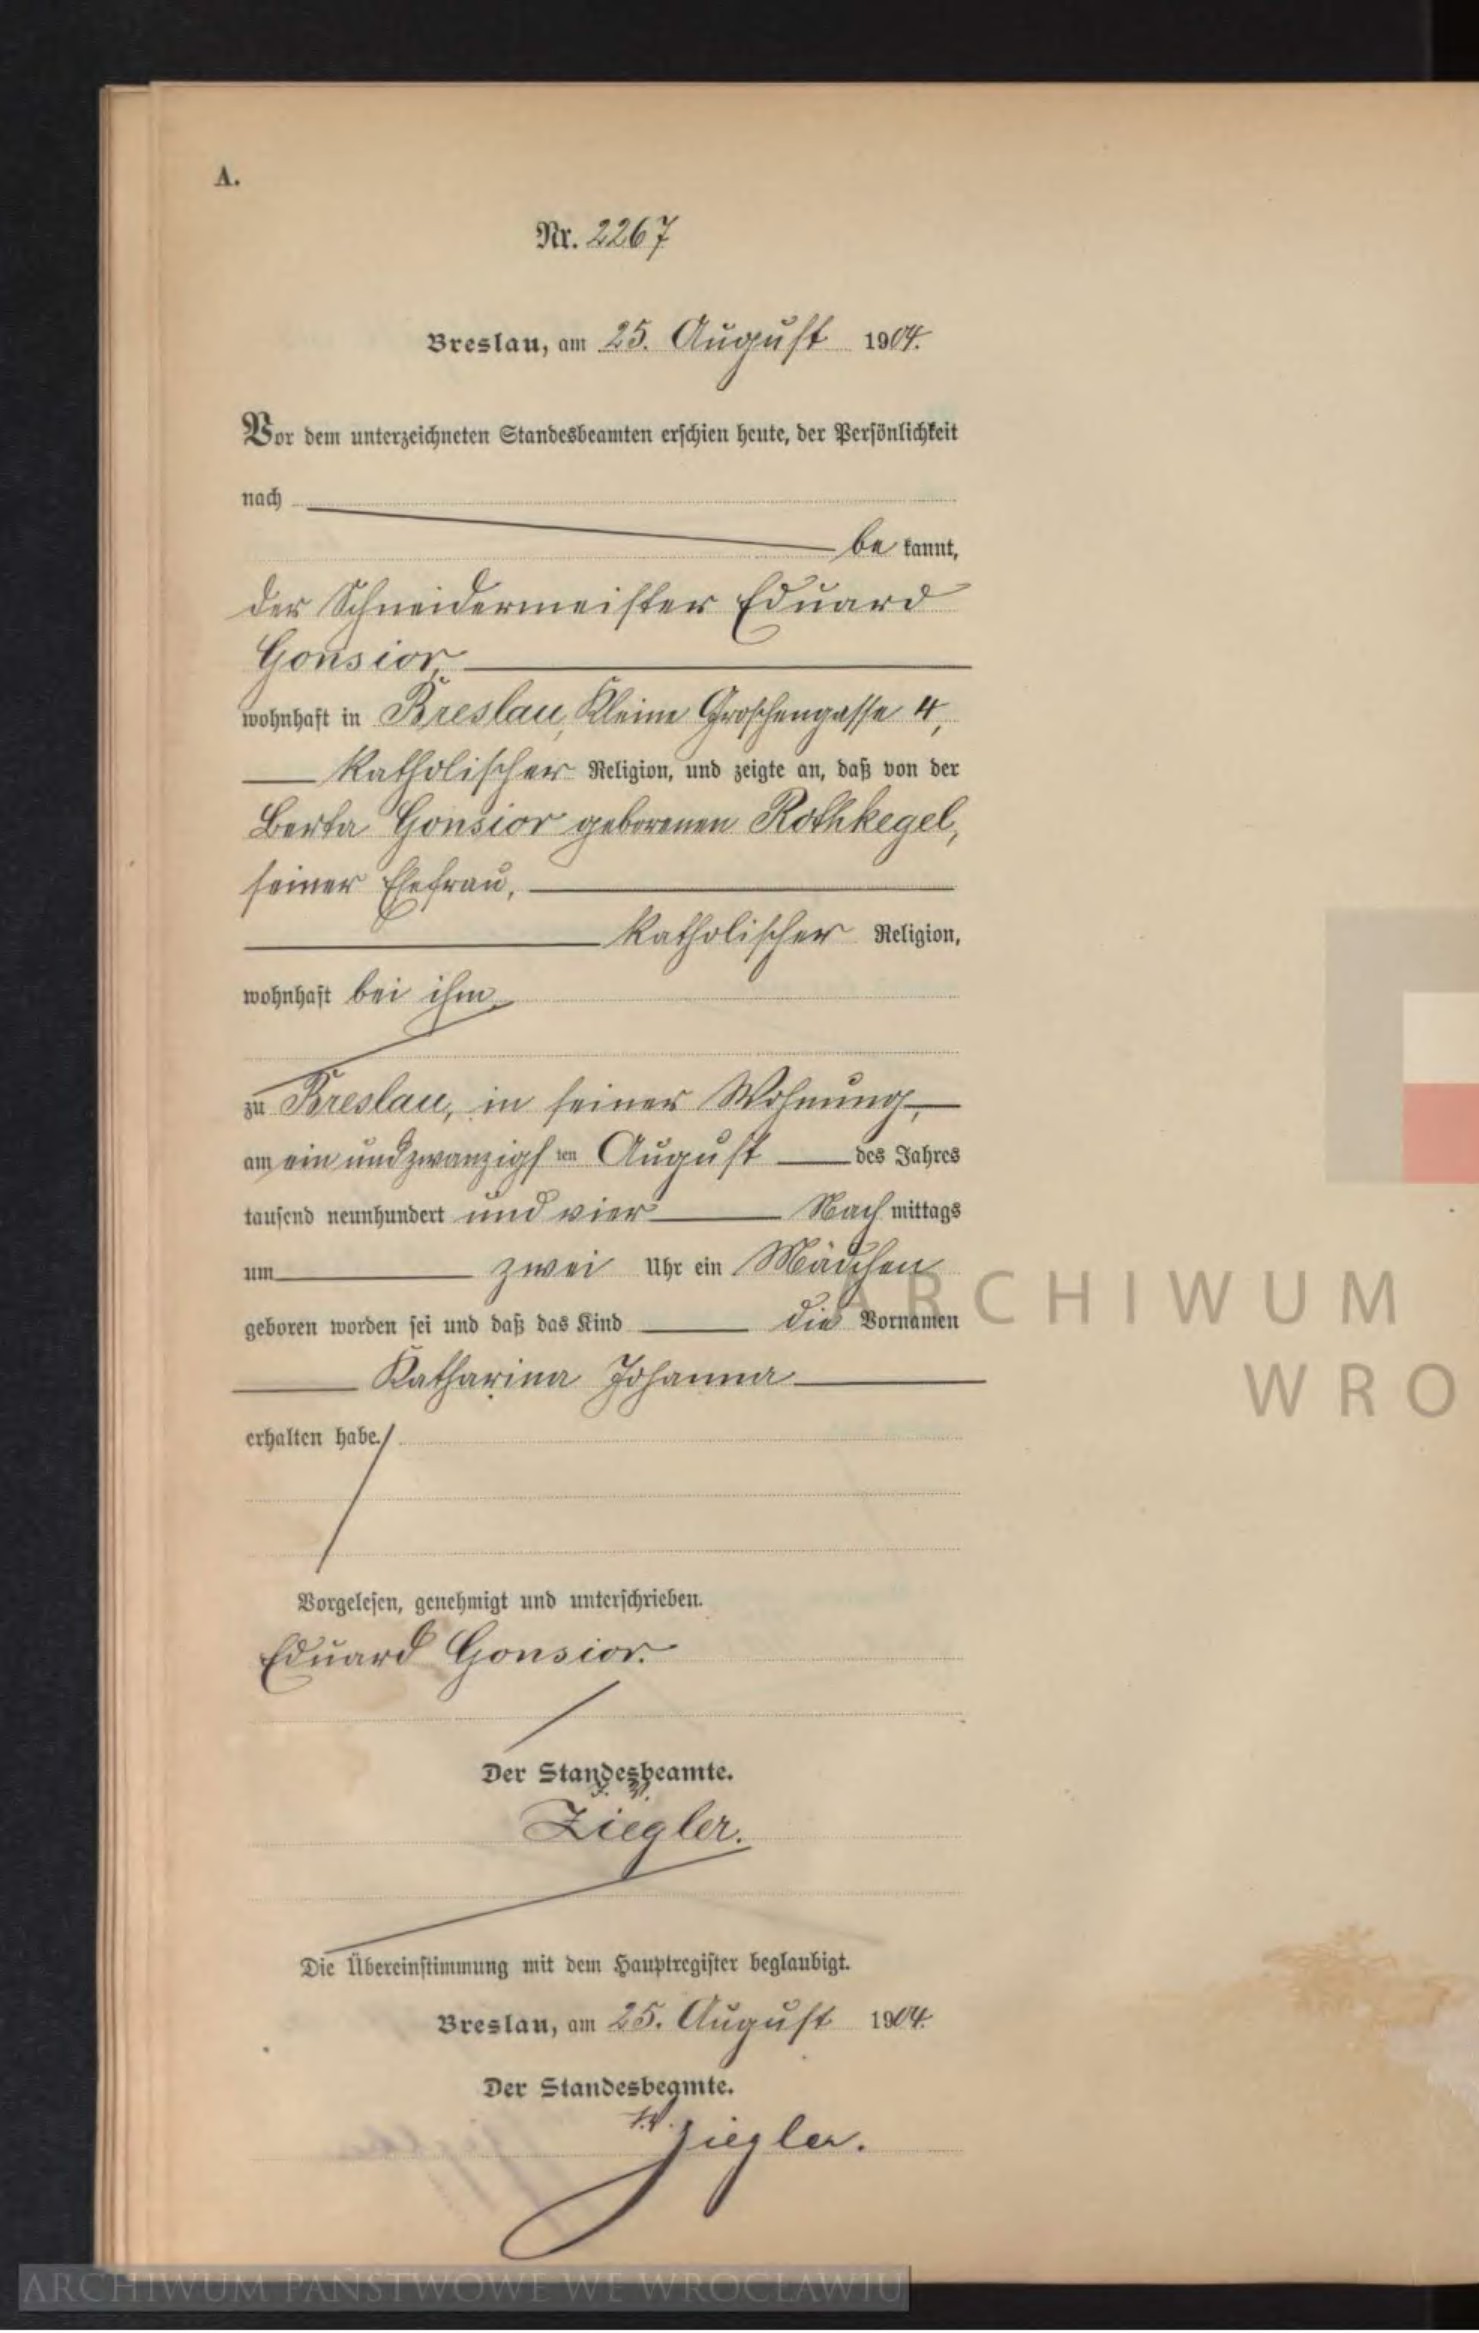 A.
Nr. 2267
Breslau, am 25. August 1904.
Vor dem unterzeichneten Standesbeamten erschien heute, der Persönlichkeit
nach
be kannt,
der Schneidermeister Eduard
Gonsior,
wohnhaft in Breslau, Kleine Groschengasse 4,
katholischer Religion, und zeigte an, daß von der
Berta Gonsior geborenen Rothkegel,
seiner Ehefrau,
katholischer Religion,
wohnhaft bei ihm,
zu Breslau, in seiner Wohnung,
am ein und zwanzigsten August des Jahres
tausend neunhundert und vier Nachmittags
um zwei Uhr ein Mädchen
geboren worden sei und daß das Kind die Vornamen
Katharina Johanna
erhalten habe.
Vorgelesen, genehmigt und unterschrieben.
Eduard Gonsior.
Der Standesbeamte.
J. V.
Ziegler.
Die Übereinstimmung mit dem Hauptregister beglaubigt.
Breslau, am 25. August 1904.
Der Standesbeamte.
J. V. Ziegler.
ARCHIWUM
WRO
ARCHIWUM PAŃSTWOWE WE WROCŁAWIU